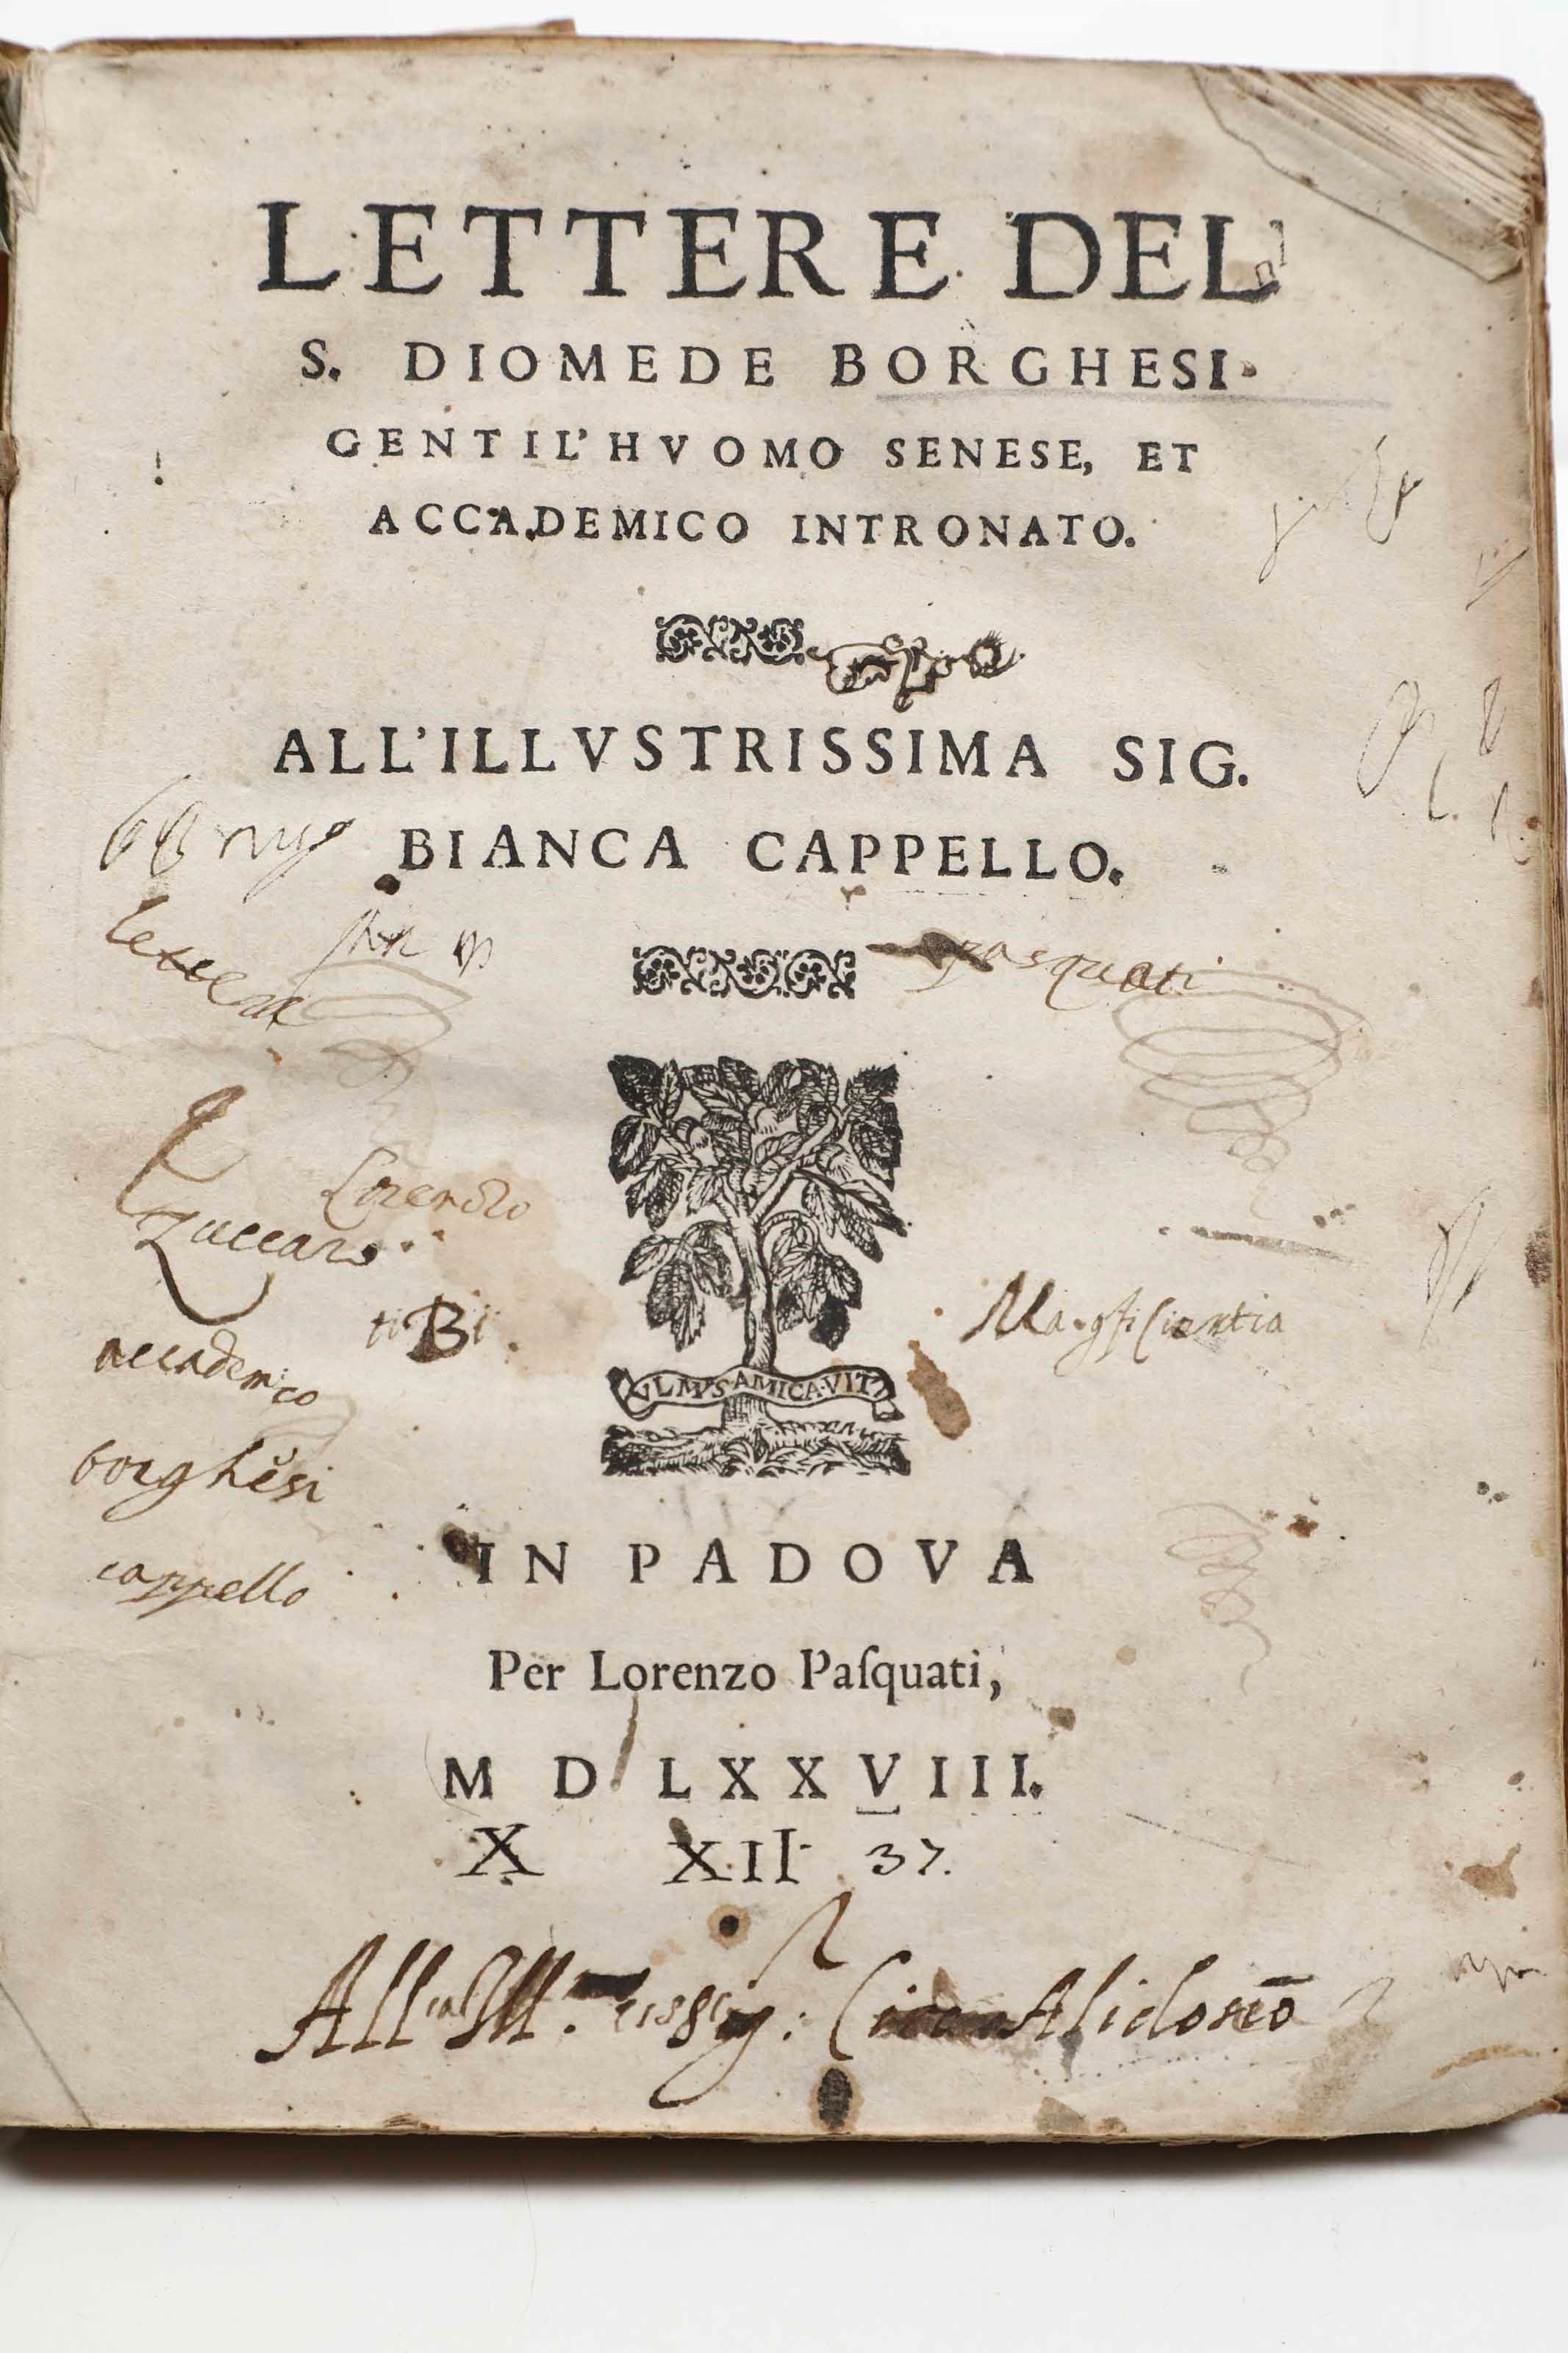 LETTERE DEL
S. DIOMEDE BORGHESI
GENTIL' HVOMO SENESE, ET
ACCADEMICO INTRONATO.
ALL'ILLVSTRISSIMA SIG.
BIANCA CAPPELLO.
lettere
pasquati
Lorenzo
Zuccaro
ti Bi
accademico
borghesi
cappello
VLMVS·AMICA·VITI
IN PADOVA
Per Lorenzo Paſquati,
M D LXXVIII.
X XII 37.
Alidosio